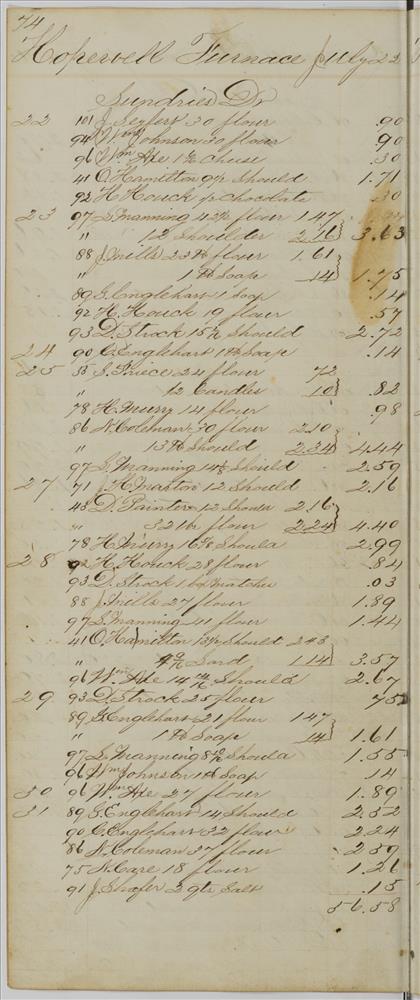 74
Hopewell Furnace July 22
Sundries Dr
22 101 J. Seyfert 30 flour .90
94 Wm Johnson 30 flour .90
96 Wm Axe 1½ Cheese .30
41 O. Hamilton 9½ Should 1.71
92 H. Houck ½ Chocolate .30
23 97 S. Manning 42 flour 1.47
" 12 Shoulder 2.16} 3.63
88 J. Mills 23 lb flour 1.61
" 1 lb Soap 14} 1.75
89 G. Englehart 1 Soap .14
92 H. Houck 19 flour .57
93 D. Strock 15 Should 2.72
24 90 C. Englehart 1 lb Soap .14
25 55 S. Priece 24 flour 72
" ½ Candles 10} .82
78 H. Murry 14 flour .98
86 N. Coleman 30 flour 2.10
" 13 lb Should 2.34} 4.44
97 S. Manning 14 Should 2.59
27 71 J. H. 12 Should 2.16
45 D. Painter 12 Should 2.16
" 32 lb flour 2.24} 4.40
78 H. Murry 16 Should 2.99
28 92 H. Houck 28 flour .84
93 D. Strock 1 bx Matches .03
88 J. Mills 27 flour 1.89
97 S. Manning 41 flour 1.44
41 O. Hamilton 13½ Should 2.43
" Lard 1.14} 3.57
96 Wm Axe 14 Should 2.67
29 93 D. Strock 25 flour 75
89 G. Englehart 21 flour 1.47
" 1 lb Soap 14} 1.61
97 S. Manning 8 Should 1.55
96 Wm Johnson 1 lb Soap .14
30 96 Wm Axe 27 flour 1.89
31 89 G. Englehart 14 Should 2.52
90 C. Englehart 32 flour 2.24
86 N. Coleman 37 flour 2.59
75 N. Care 18 flour 1.26
91 J. Shafer 3 qts Salt .15
56.58